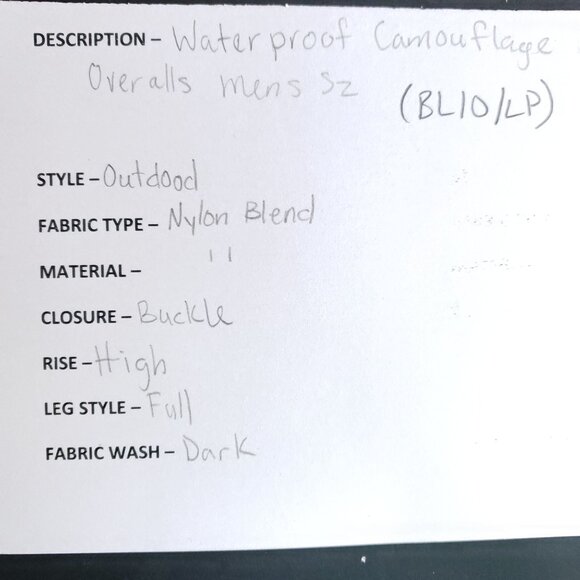 DESCRIPTION – Waterproof Camouflage
Overalls mens Sz (BL10/LP)
STYLE – Outdood
FABRIC TYPE – Nylon Blend
MATERIAL – 〃
CLOSURE – Buckle
RISE – High
LEG STYLE – Full
FABRIC WASH – Dark